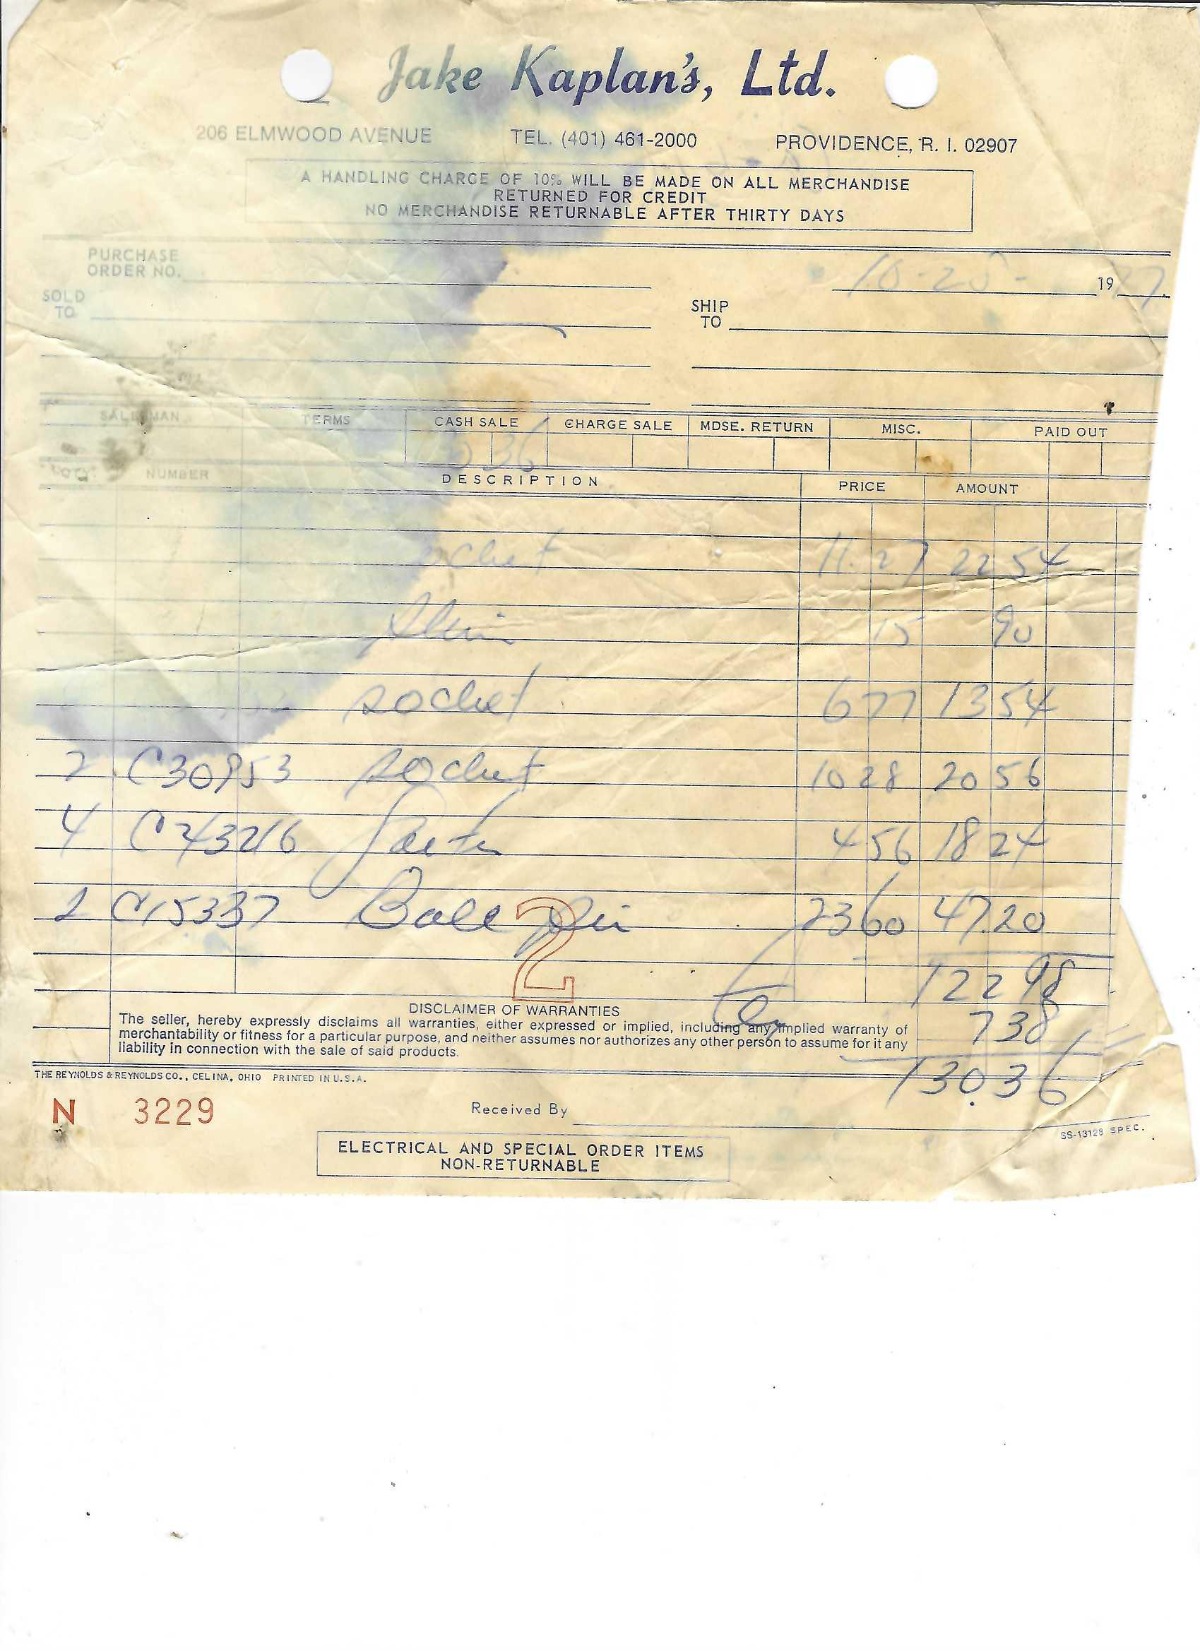 Jake Kaplan's, Ltd.
206 ELMWOOD AVENUE TEL. (401) 461-2000 PROVIDENCE, R. I. 02907
A HANDLING CHARGE OF 10% WILL BE MADE ON ALL MERCHANDISE
RETURNED FOR CREDIT
NO MERCHANDISE RETURNABLE AFTER THIRTY DAYS
PURCHASE
ORDER NO.
19
SOLD
TO
SHIP
TO
SALESMAN TERMS CASH SALE CHARGE SALE MDSE. RETURN MISC. PAID OUT
QTY. NUMBER DESCRIPTION PRICE AMOUNT
11.27 22 54
15 90
socket 6 77 13 54
2 C30953 socket 10 28 20 56
4 C43216 4 56 18 24
2 C15337 Ball 23 60 47.20
122 98
DISCLAIMER OF WARRANTIES
The seller, hereby expressly disclaims all warranties, either expressed or implied, including any implied warranty of
merchantability or fitness for a particular purpose, and neither assumes nor authorizes any other person to assume for it any
liability in connection with the sale of said products.
2
7 38
130.36
THE REYNOLDS & REYNOLDS CO., CELINA, OHIO PRINTED IN U.S.A.
N 3229
Received By
SS-13128 SPEC.
ELECTRICAL AND SPECIAL ORDER ITEMS
NON-RETURNABLE